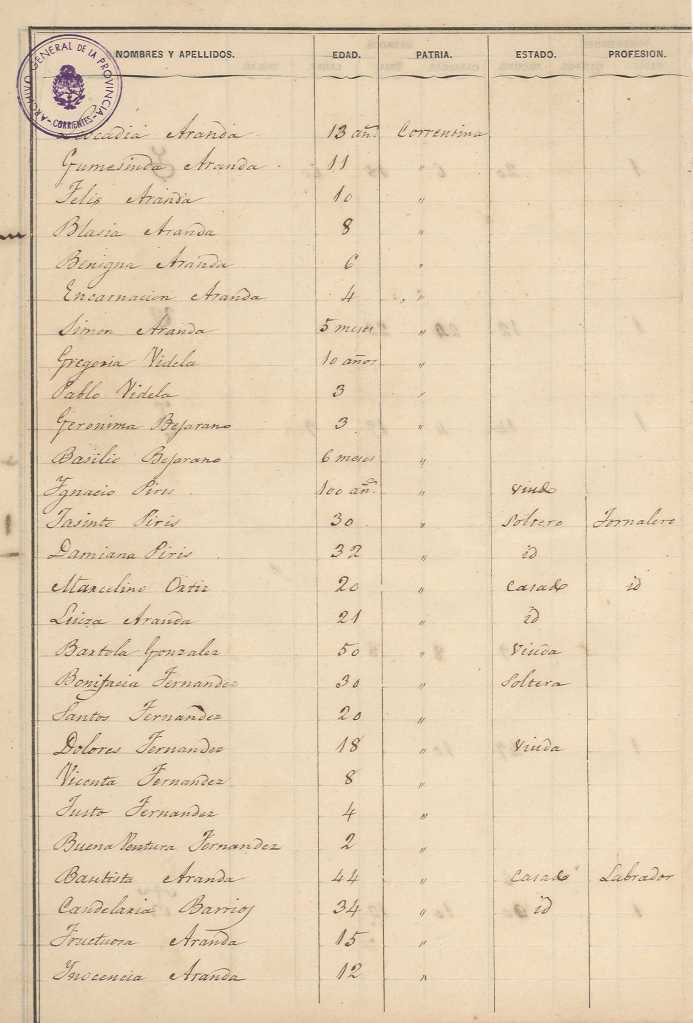 NOMBRES Y APELLIDOS. EDAD. PATRIA. ESTADO. PROFESION.
ARCHIVO GENERAL DE LA PROVINCIA - CORRIENTES -
Aranda 13 añ. Correntina
Gumesinda Aranda 11 "
Felis Aranda 10 "
Blasia Aranda 8 "
Benigna Aranda 6 "
Encarnacion Aranda 4 "
Simon Aranda 5 meses "
Gregoria Videla 10 años "
Pablo Videla 3 "
Geronima Bejarano 3 "
Basilio Bejarano 6 meses "
Ygnacio Piris 100 añ. " Viudo
Jasinto Piris 30 " Soltero Jornalero
Damiana Piris 32 " id
Marcelino Ortis 20 " Casado id
Luiza Aranda 21 " id
Bartola Gonzalez 50 " Viuda
Bonifacia Fernandez 30 " Soltera
Santos Fernandez 20 "
Dolores Fernandez 18 " Viuda
Vicenta Fernandez 8 "
Justo Fernandez 4 "
Buena Ventura Fernandez 2 "
Bautista Aranda 44 " Casado Labrador
Candelaria Barrios 34 " id
Fructuosa Aranda 15 "
Inocencia Aranda 12 "